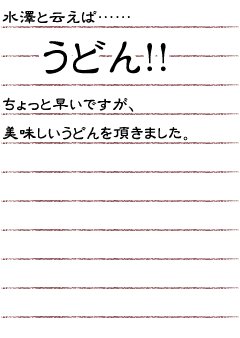 水澤と云えば……
うどん!!
ちょっと早いですが、
美味しいうどんを頂きました。